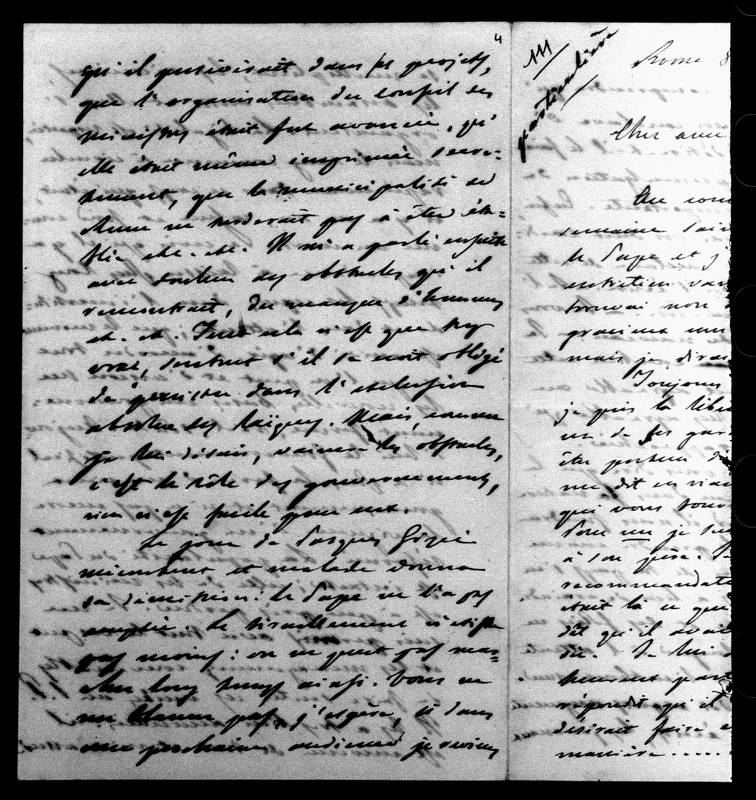 4
qu'il persévérait dans ses projets,
que l'organisation du conseil des
ministres était fort avancée, qu'
elle était même imprimée secrè-
tement, que la municipalité de
Rome ne tarderait pas à être éta-
blie etc. etc. Il m'a parlé ensuite
avec douleur des obstacles qu'il
rencontrait, du manque d'hommes
et. et. Tout cela n'est que trop
vrai, surtout s'il se croit obligé
de persister dans l'exclusion
absolue des laïques. Mais, comme
je lui disais, vaincre les obstacles,
c'est le rôle des gouvernements,
rien n'est facile pour eux.
Le jour de Pasques Gizzi
mécontent et malade donna
sa démission: le Pape ne l'a pas
acceptée. Le tiraillement n'existe
pas moins: on ne peut pas mar-
cher long temps ainsi. Vous ne
me blamez pas, j'espère, si dans
une prochaine audience je reviens
111/
particulière
Rome 8
Cher ami
semaine sai
le Pape et j'
entretien
trouvai non
gracieux
mais je dirai
Toujours
je pris la liber
un de ses
être porteur d
me dit en
qui vous
Pour un je
à son
recommandat
était là ce que
dit qu'il avait
de. Je lui
répondit qu'il
désirait faire
manière.....